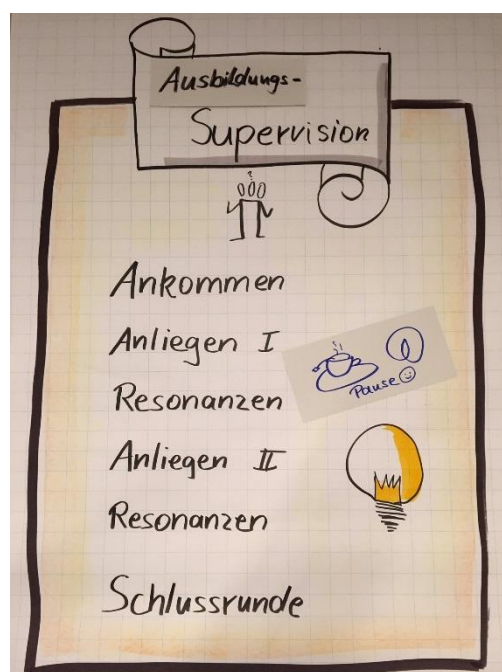 Ausbildungs-
Supervision
?
Ankommen
Anliegen I
Resonanzen
Pause
Anliegen II
Resonanzen
Schlussrunde